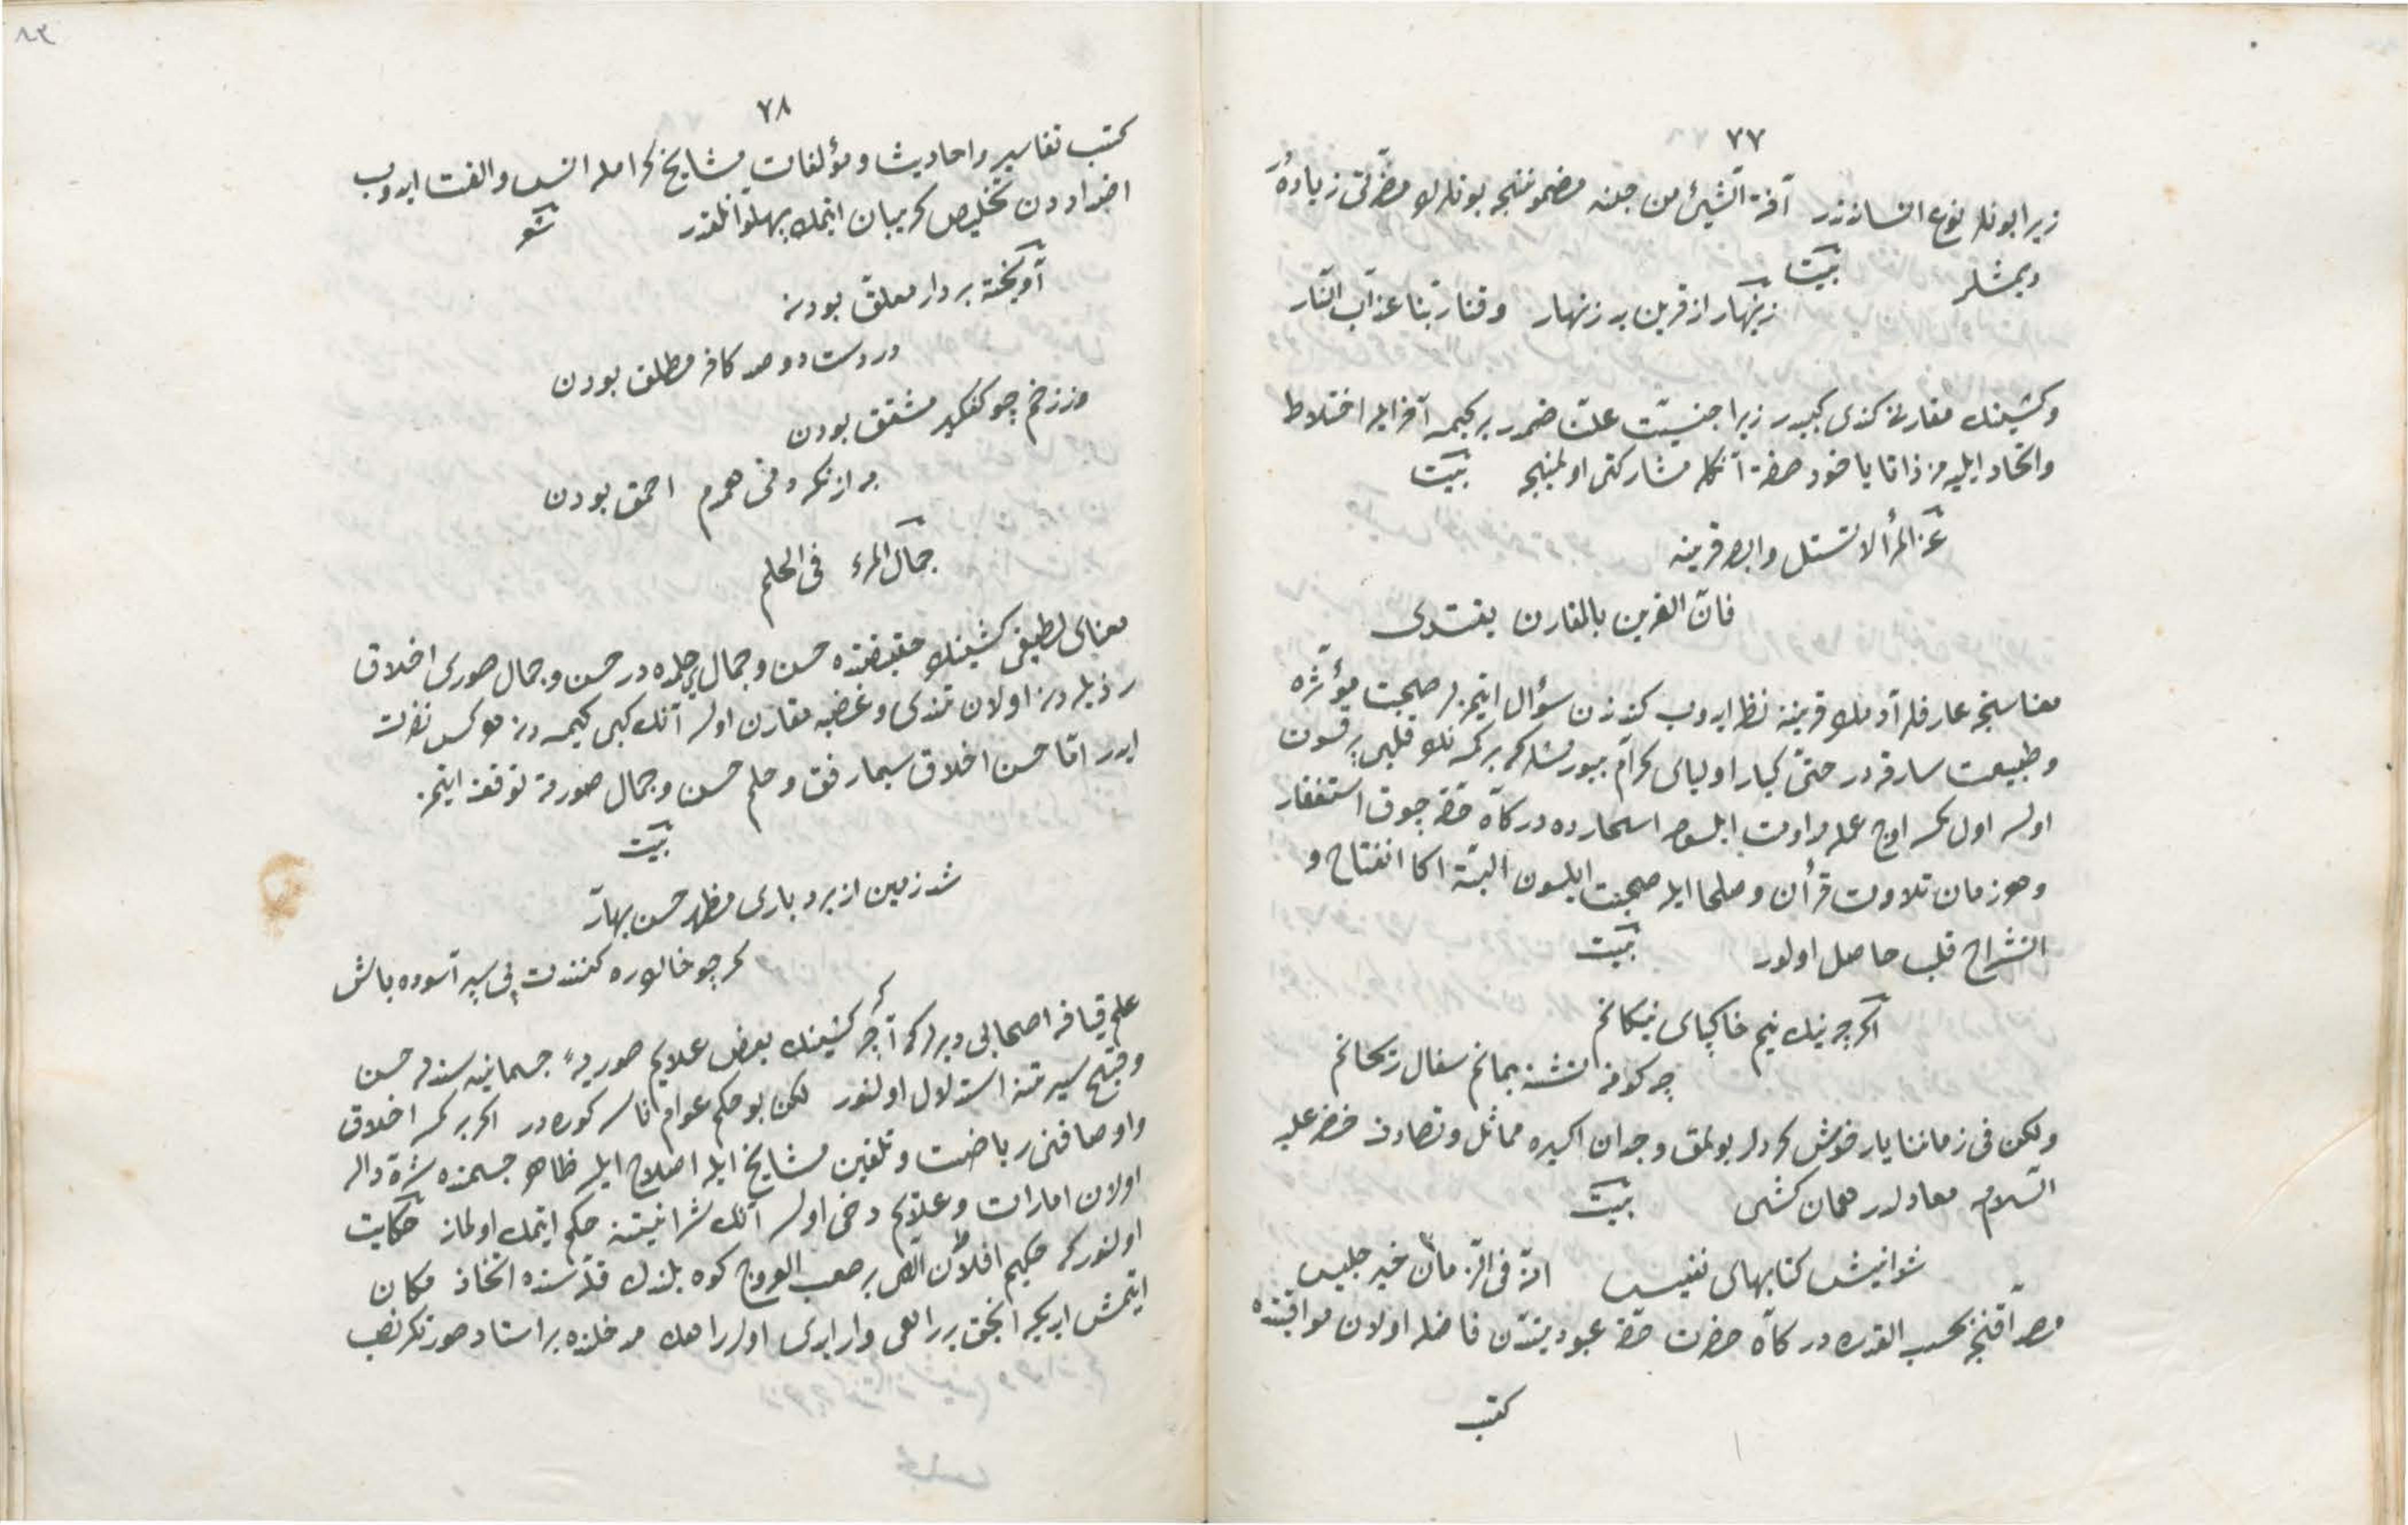 ٧٧
زيرا بونلر نوع انساندندر آفة الشئ من جنسه مضموننجه بونلرك مضرتى زياده در
ديمشلر بيت
زينهار از قرين بد زنهار وقنا ربنا عذاب النار
وكشينك مقارنى كندى كبيدر زيرا جنسيت علت ضمدر بر كيمسه آخر ايله اختلاط
واتحاد ايليه مز ذاتا ياخود صفة آنكله مشاركتى اولمينجه بيت
عن المرء لا تسئل وابصر قرينه
فان القرين بالمقارن يقتدى
معناسنجه عارفلر آدمك قرينه نظر ايدوب كندندن سؤال ايتمزلر صحبت مؤثره
وطبيعت سارقه در حتى كبار اولياى كرام بيورمشلر كه بر كمسه نك قلبى پر قسوت
اولسه اول كمسه اوچ عمله مداومت ايلسون اسحارده دركاه حقه چوق استغفار
وهر زمان تلاوت قرآن وصلحا ايله صحبت ايلسون البته اكا انفتاح و
انشراح قلب حاصل اولور بيت
اكرچه نيك نيم خاكپاى نيكانم
چه كوزه تشنه بمانم سفال ريحانم
ولكن فى زماننا يار خوش كردار بولمق وجدان اكسيره مماثل وتصادف خضر عليه
السلام معادلدر همان كشى بيت
شو انيس كتابهاى نفيس انه فى الزمان خير جليس
مصداقنجه بحسب القدره دركاه حضرت حقه عبوديتندن فاضله اولان مواقيتنده
كتب
٧٨
كتب تفاسير واحاديث ومؤلفات مشايخ كرامله انس والفت ايدوب
اضداددن تخليص كريبان ايتمك پهلوانلقدر شعر
آويخته بر دار معلق بودن
در دست دو صد كافر مطلق بودن
وز زخم چو كفكير مشقق بودن
به زانكه دمى همدم احمق بودن
جمال المرء فى الحلم
معناى لطيفى كشينك حقيقتده حسن وجمال حلمده در حسن وجمال صورى اخلاق
رذيله دن اولان تندى وغضبه مقارن اولسه آنك كبى كيمسه دن هركس نفرت
ايدر اما حسن اخلاق سيما رفق وحلم حسن وجمال صورته توقف ايتمز
بيت
شد زمين از بردبارى مظهر حسن بهار
كر چو خاك ره كنندت پى سپر آسوده باش
علم قيافه اصحابى ديرلر كه اكرچه كشينك بعض علايم صوريه جسمانيه سندن حسن
وقبح سيرتنه استدلال اولنور لكن بو حكم عوام ناسه كوره در اكر بر كمسه اخلاق
واوصافنى رياضت وتلقين مشايخ ايله اصلاح ايلسه ظاهر جسمنده شره دال
اولان امارات وعلايم دخى اولسه آنك شرانيتنه حكم ايتمك اولماز حكايت
اولنور كه حكيم افلاطون الهى بر صعب العروج كوه بلندك قله سنده اتخاذ مكان
ايتمش ايديكه انجق بر راهى وار ايدى اول راهك مدخلنده بر استاد صورتكر نصب